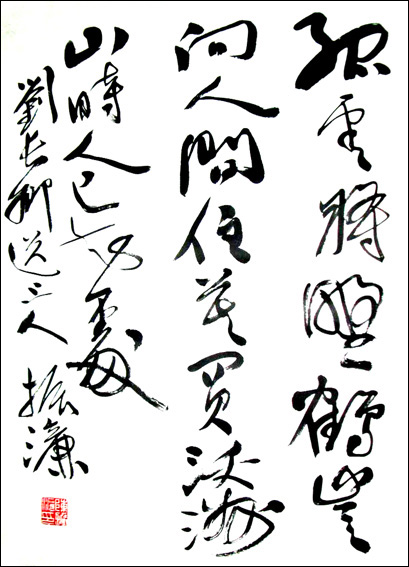 孤雲將野鶴豈
向人間住莫買沃洲
山時人已知處
劉長卿送上人 振濂